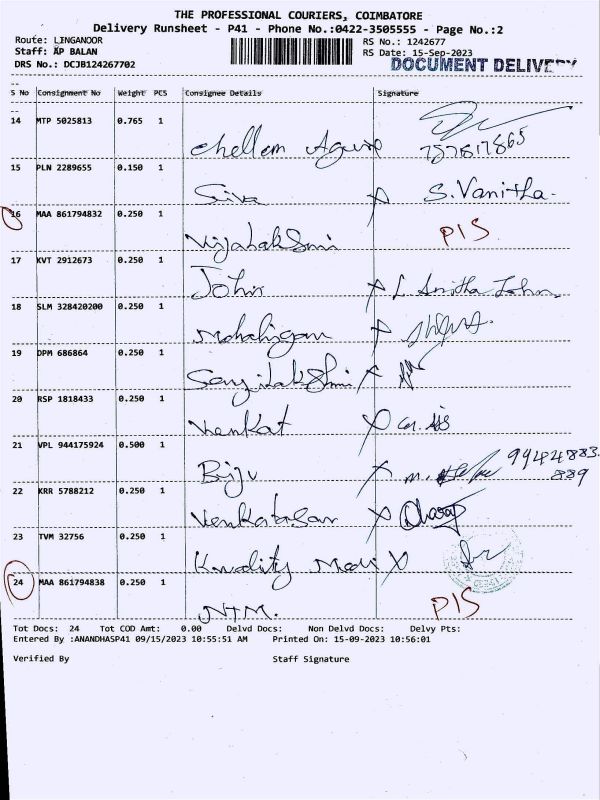 THE PROFESSIONAL COURIERS, COIMBATORE
Delivery Runsheet - P41 - Phone No.:0422-3505555 - Page No.:2
Route: LINGANOOR
RS No.: 1242677
Staff: AP BALAN
RS Date: 15-Sep-2023
DRS No.: DCJB124267702
DOCUMENT DELIVERY
S No Consignment No Weight PCS Consignee Details Signature
14 MTP 5025813 0.765 1
Chellam
15 PLN 2289655 0.150 1
Siva S. Vanitha
16 MAA 861794832 0.250 1
Vijialakshmi PIS
17 KVT 2912673 0.250 1
John Anitha John
18 SLM 328420200 0.250 1
19 DPM 686864 0.250 1
20 RSP 1818433 0.250 1
Venkat
21 VPL 944175924 0.500 1
Biju 99424883
889
22 KRR 5788212 0.250 1
Venkatasan
23 TVM 32756 0.250 1
Kwality Medi
24 MAA 861794838 0.250 1
NTM. PIS
Tot Docs: 24 Tot COD Amt: 0.00 Delvd Docs: Non Delvd Docs: Delvy Pts:
Entered By :ANANDHASP41 09/15/2023 10:55:51 AM Printed On: 15-09-2023 10:56:01
Verified By Staff Signature